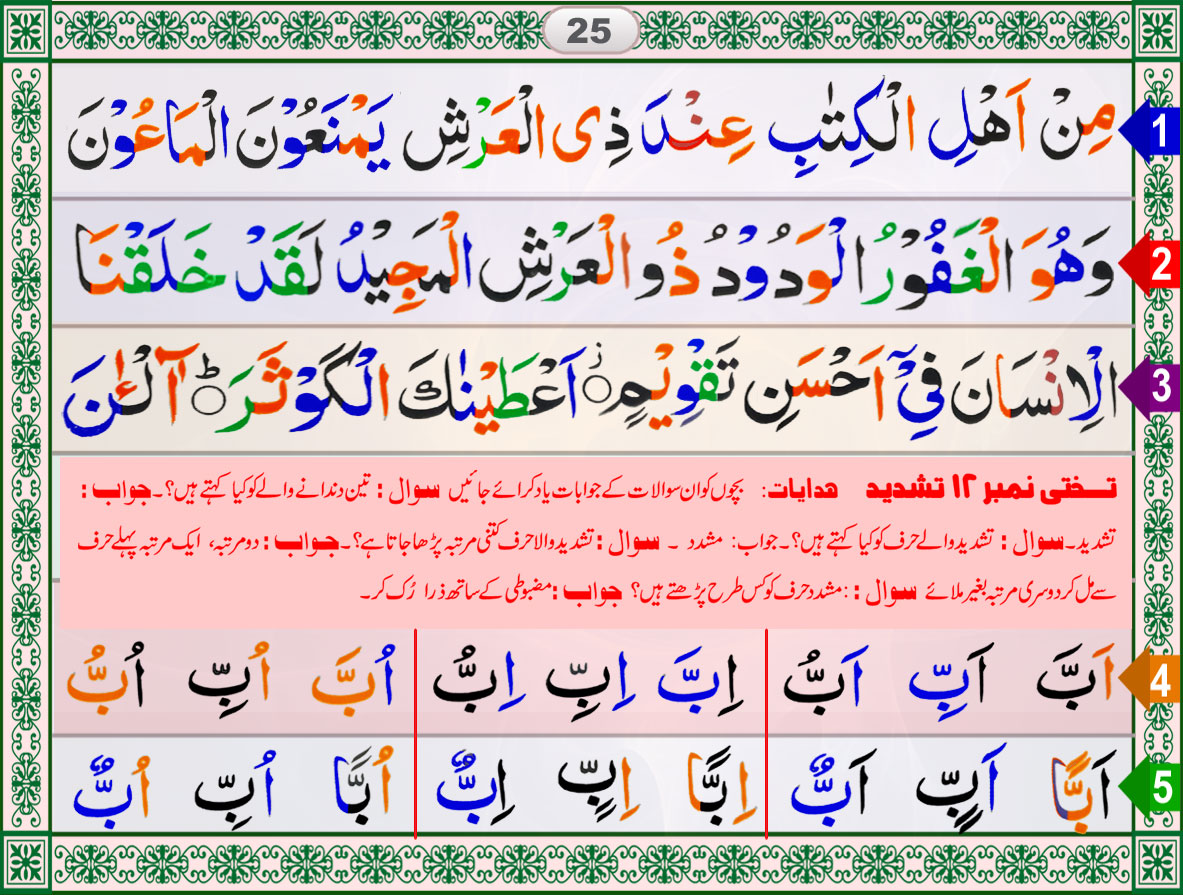 25
1 مِنْ اَهْلِ الْكِتٰبِ عِنْدَ ذِی الْعَرْشِ يَمْنَعُوْنَ الْمَاعُوْنَ
2 وَهُوَ الْغَفُوْرُ الْوَدُوْدُ ذُو الْعَرْشِ الْمَجِيْدُ لَقَدْ خَلَقْنَا
3 الْاِنْسَانَ فِیْۤ اَحْسَنِ تَقْوِيْمٍ ۟ اَعْطَيْنٰكَ الْكَوْثَرَ ؕ آلْـٰٔنَ
تختی نمبر ۱۲ تشدید ھدایات: بچوں کو ان سوالات کے جوابات یاد کرائے جائیں سوال : تین دندانے والے کو کیا کہتے ہیں؟۔ جواب :
تشدید۔ سوال : تشدید والے حرف کو کیا کہتے ہیں؟۔ جواب: مشدد ۔ سوال : تشدید والا حرف کتنی مرتبہ پڑھا جاتا ہے؟۔ جواب : دو مرتبہ، ایک مرتبہ پہلے حرف
سے مل کر دوسری مرتبہ بغیر ملائے سوال : :مشدد حرف کو کس طرح پڑھتے ہیں؟ جواب :مضبوطی کے ساتھ ذرا رُک کر۔
4 اَبَّ اَبِّ اَبُّ اِبَّ اِبِّ اِبُّ اُبَّ اُبِّ اُبُّ
5 اَبًّا اَبٍّ اَبٌّ اِبًّا اِبٍّ اِبٌّ اُبًّا اُبِّ اُبٌّ